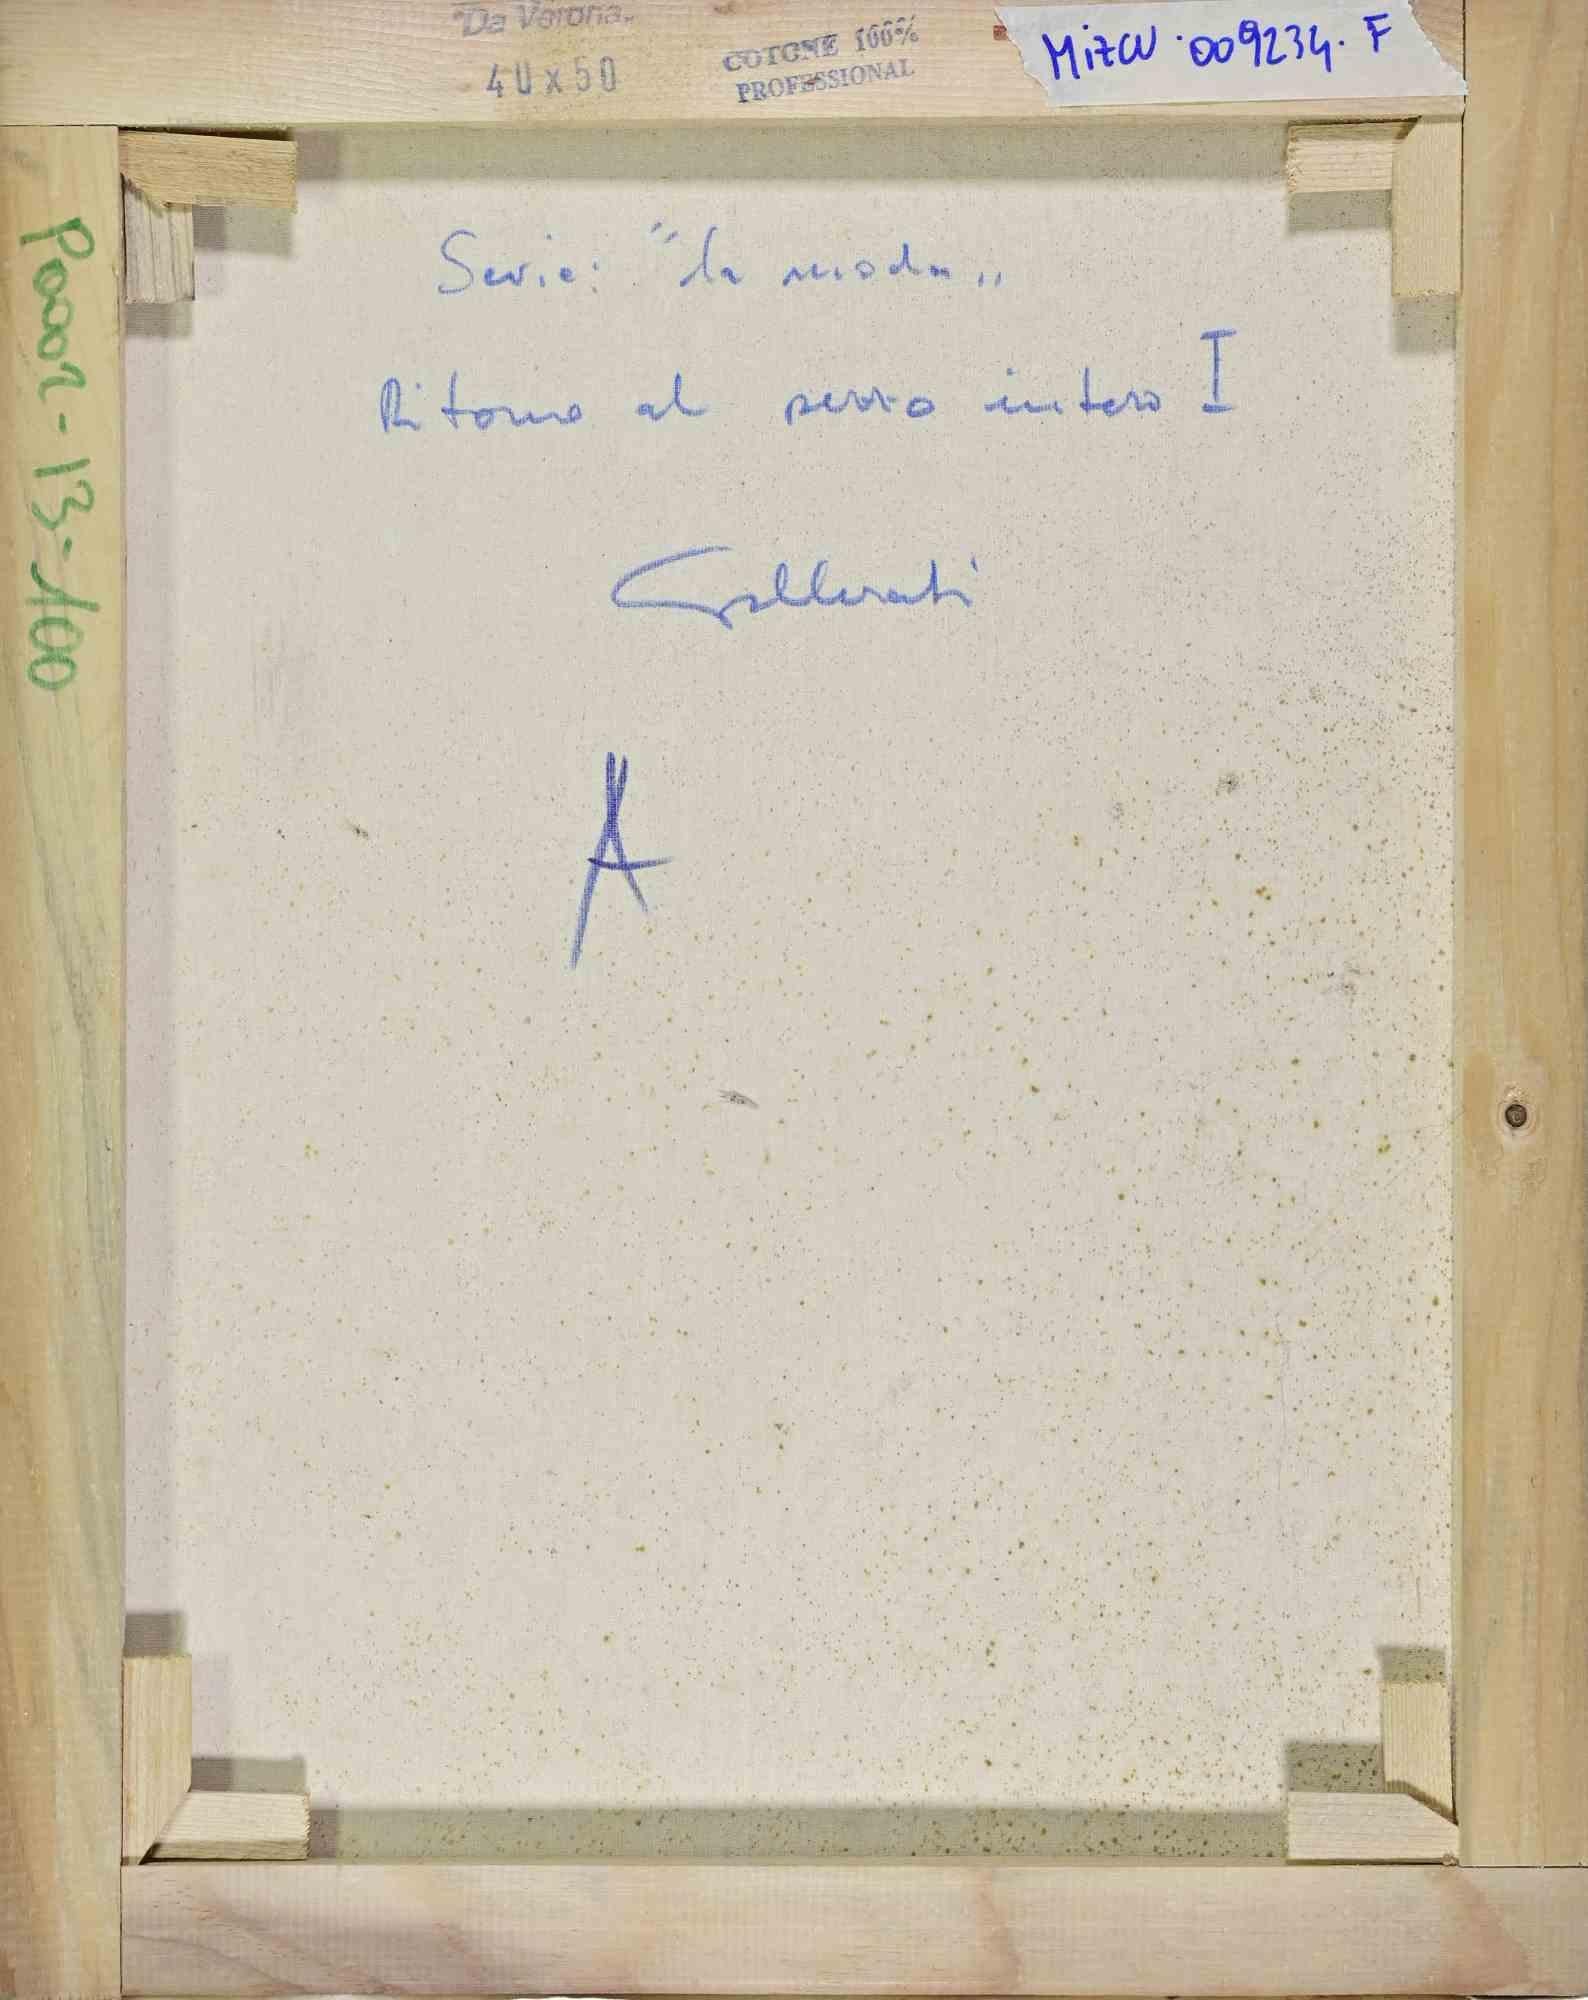 "Da Verona"
40 x 50
COTONE 100%
PROFESSIONAL
009234. F
Serie: "la moda"
Ritorno al pezzo intero I
Gallerati
A